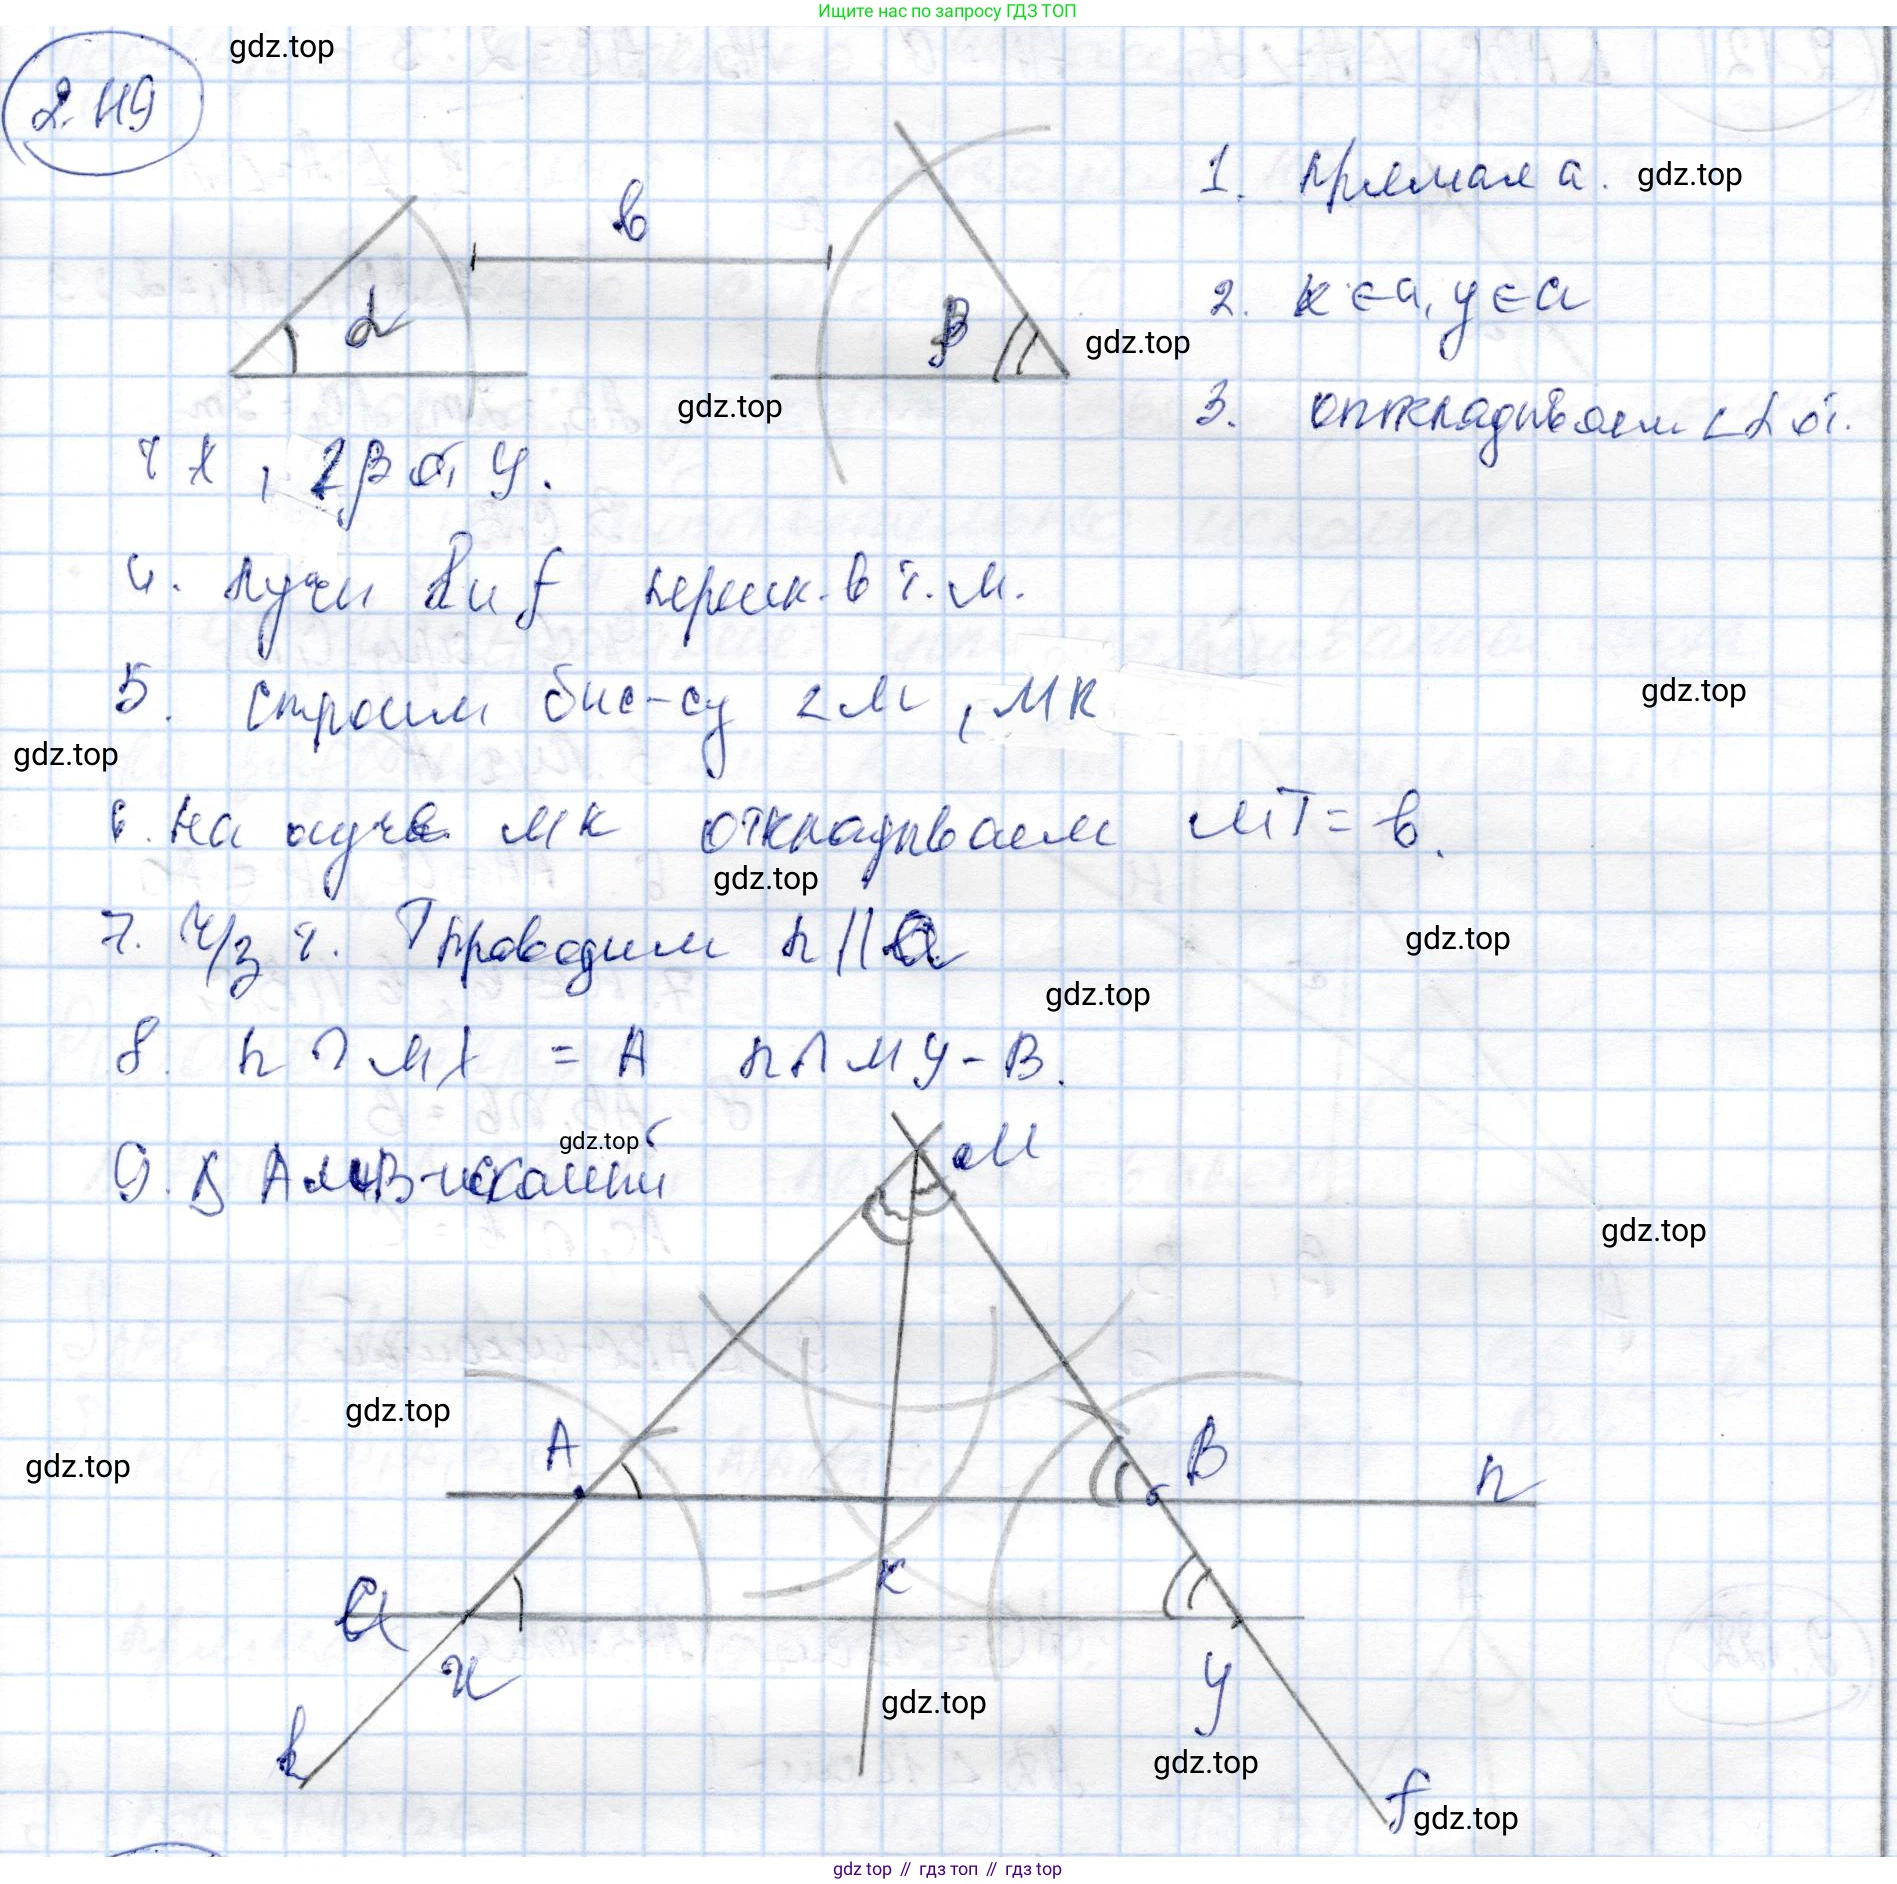 Ищите нас по запросу ГДЗ ТОП
2.119
gdz.top
b
α
β
1. прямая a. gdz.top
2. x ∈ a, y ∈ a
gdz.top
gdz.top
3. откладываем ∠α от
т X, ∠β от y.
4. лучи k и f перессек. в т. M.
5. строим бис-су ∠M, MK
gdz.top
gdz.top
6. на луче MK откладываем MT = b.
gdz.top
7. ч/з т. T проводим n || a
gdz.top
gdz.top
8. n ∩ MX = A n ∩ MY - B.
gdz.top
9. Δ AMB - искомый
M
gdz.top
gdz.top
A
B
gdz.top
n
K
a
x
y
gdz.top
k
gdz.top
f
gdz.top
gdz top // гдз топ // гдз top